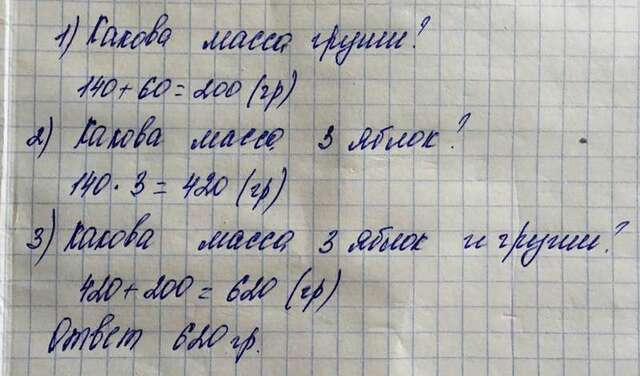 1) Какова масса груши?
140+60=200 (гр)
2) Какова масса 3 яблок?
140·3=420 (гр)
3) Какова масса 3 яблок и груши?
420+200=620 (гр)
Ответ 620 гр.